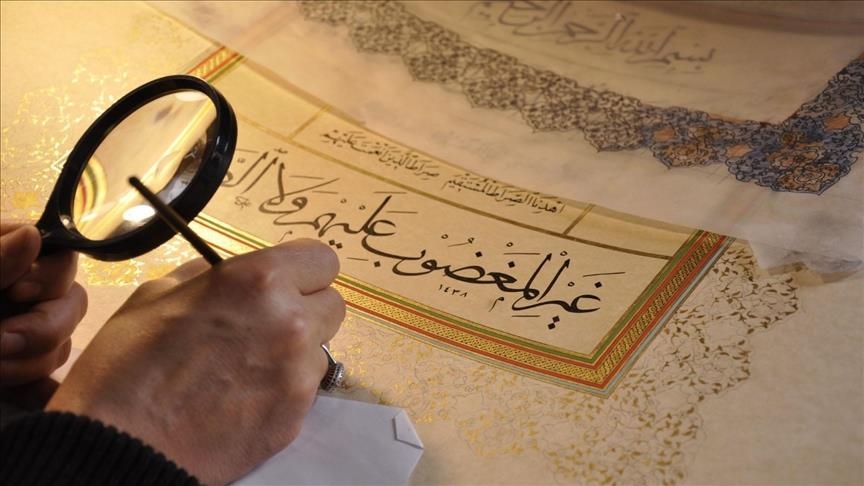 بسم الله الرحمن الرحيم
اِهْدِنَا الصِّرَاطَ الْمُسْتَقِيمَ صِرَاطَ الَّذِينَ اَنْعَمْتَ عَلَيْهِمْ
غَيْرِ الْمَغْضُوبِ عَلَيْهِمْ وَلَا
١٤٣٨